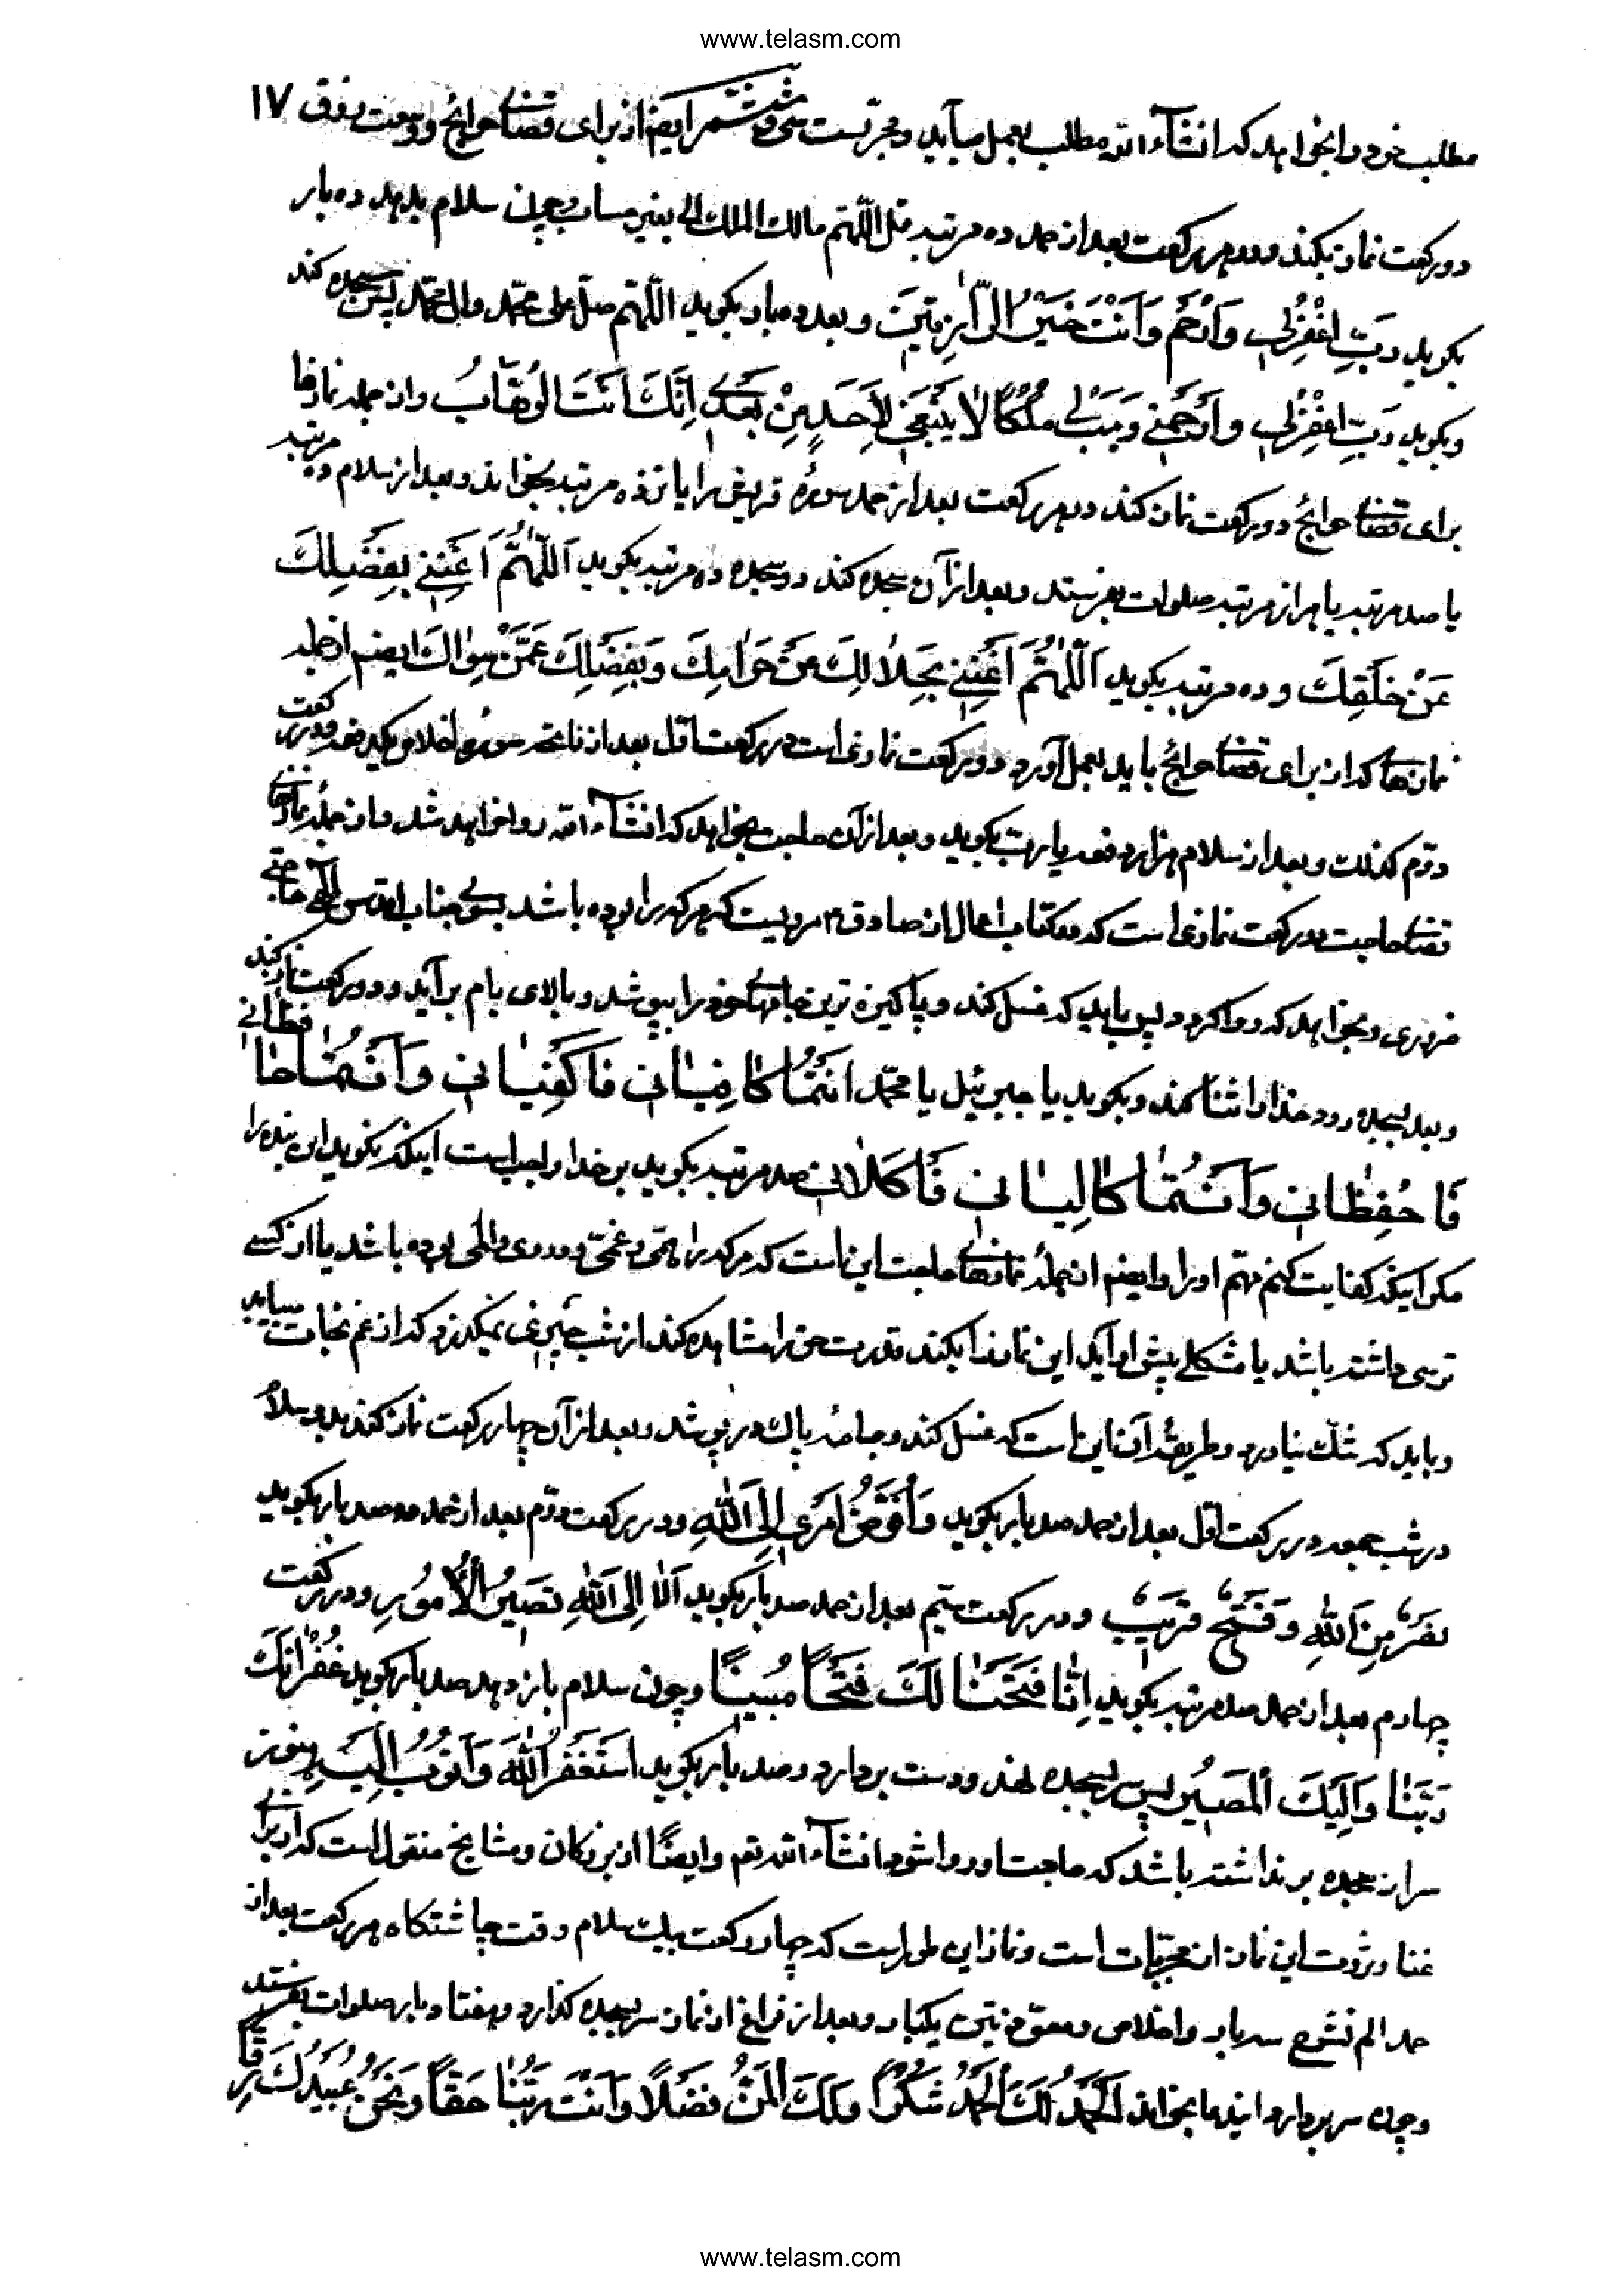 www.telasm.com
۱۷
مطلب خود را بخواهد که انشآء الله مطلب بعمل میآید و مجربست سی و ششم ایضا از برای قضای حوایج و وسعت رزق
دو رکعت نماز بکند و در هر رکعت بعد از حمد ده مرتبه قل اللّهم مالک الملک الی بغیر حساب و چون سلام بدهد ده بار
بکوید رَبِّ اغْفِرْلی وَارْحَمْ وَاَنْتَ خَیْرُ الرّاحِمینَ و بعد ده بار بکوید اللّهم صلّ علی محمّد و ال محمّد پس سجده کند
و بکوید رَبِّ اغْفِرْلی وَارْحَمْنی وَهَبْ لی مُلْکًا لا یَنْبَغی لِاَحَدٍ مِنْ بَعْدی اِنَّکَ اَنْتَ الْوَهّابُ و از جمله نمازها
برای قضای حوایج دو رکعت نماز کند در هر رکعت بعد از حمد سورهٔ قریش را پانزده مرتبه بخواند و بعد از سلام ده مرتبه
یا صد مرتبه یا هزار مرتبه صلوات بفرستد و بعد از آن سجده کند و در سجده ده مرتبه بکوید اَللّهُمَّ اَغْنِنی بِفَضْلِکَ
عَنْ خَلْقِکَ و ده مرتبه بکوید اَللّهُمَّ اَغْنِنی بِحَلالِکَ عَنْ حَرامِکَ وَبِفَضْلِکَ عَمَّنْ سِواکَ ایضا از جمله
نمازهائی که از برای قضای حوایج باید بعمل آورد دو رکعت نمازی است در رکعت اول بعد از فاتحه سوره اخلاص یکدفعه و در رکعت
دوّم کذلک و بعد از سلام هزار دفعه یا رب بکوید و بعد از آن حاجت بخواهد که انشآء الله روا خواهد شد و از جمله نمازهای
قضای حاجت دو رکعت نمازی است که در کتاب اعمال از صادق ع مرویست که هر که را بوده باشد بسوی جناب اقدس الهی حاجتی
ضروری و بخواهد که روا کردد پس باید که غسل کند و پاکیزه ترین جامهای خود را بپوشد و بالای بام برآید و دو رکعت نماز کند
و بعد بسجده رود خدا را ثنا کند و بکوید یا جبرئیل یا محمّد اَنْتُما کافِیانی فَاکْفِیانی وَاَنْتُما حافِظانی
فَاحْفِظانی وَاَنْتُما کالِیانی فَاکْلانی صد مرتبه بکوید بر خدا واجب است اینکه نکوید این بنده را
مکر اینکه کفایت کنم مهم او را و ایضا از جمله نمازهای حاجت این است که هر که را همّی و غمّی و دردی و المی بوده باشد یا از کسی
ترسی داشته باشد یا مشکلی پیش او آید این نماز را بکند قدرت حق را مشاهده کند از شب چیزی نمیکذرد که از غم نجات مییابد
و باید که شک نیاورد و طریقهٔ آن این است که غسل کند و جامهٔ پاک در پوشد و بعد از آن چهار رکعت نماز کند بدو سلام
در شب جمعه در رکعت اول بعد از حمد صد بار بکوید وَاُفَوِّضُ اَمْری اِلَی اللهِ و در رکعت دوّم بعد از حمد صد بار بکوید
نَصْرٌ مِنَ اللهِ وَفَتْحٌ قَریبٌ و در رکعت سیم بعد از حمد صد بار بکوید اَلا اِلَی اللهِ تَصیرُ الْاُمُورُ و در رکعت
چهارم بعد از حمد صد مرتبه بکوید اِنّا فَتَحْنا لَکَ فَتْحًا مُبینًا و چون سلام باز دهد صد بار بکوید غُفْرانَکَ
رَبَّنا وَاِلَیْکَ الْمَصیرُ پس سر بسجده نهد و دست بردارد و صد بار بکوید اَسْتَغْفِرُ اللهَ وَاَتُوبُ اِلَیْهِ هنوز
سر از سجده بر نداشته باشد که حاجت او روا شود انشآء الله تع و ایضًا از بزرکان و مشایخ منقول است که از برای
غنا و ثروت این نماز از مجربات است و نماز این طور است که چهار رکعت بیک سلام وقت چاشتکاه هر رکعت بعد از
حمد الم نشرح سه بار و اخلاص و معوّذتین یکبار و بعد از فراغ از نماز سر بسجده کذارد و هفتاد بار صلوات بفرستد
و چون سر بردارد ایندعا بخواند اَللّهُمَّ لَکَ الْحَمْدُ شُکْرًا وَلَکَ الْمَنُّ فَضْلًا وَاَنْتَ رَبُّنا حَقًّا وَنَحْنُ عَبیدُکَ رِقًّا
www.telasm.com